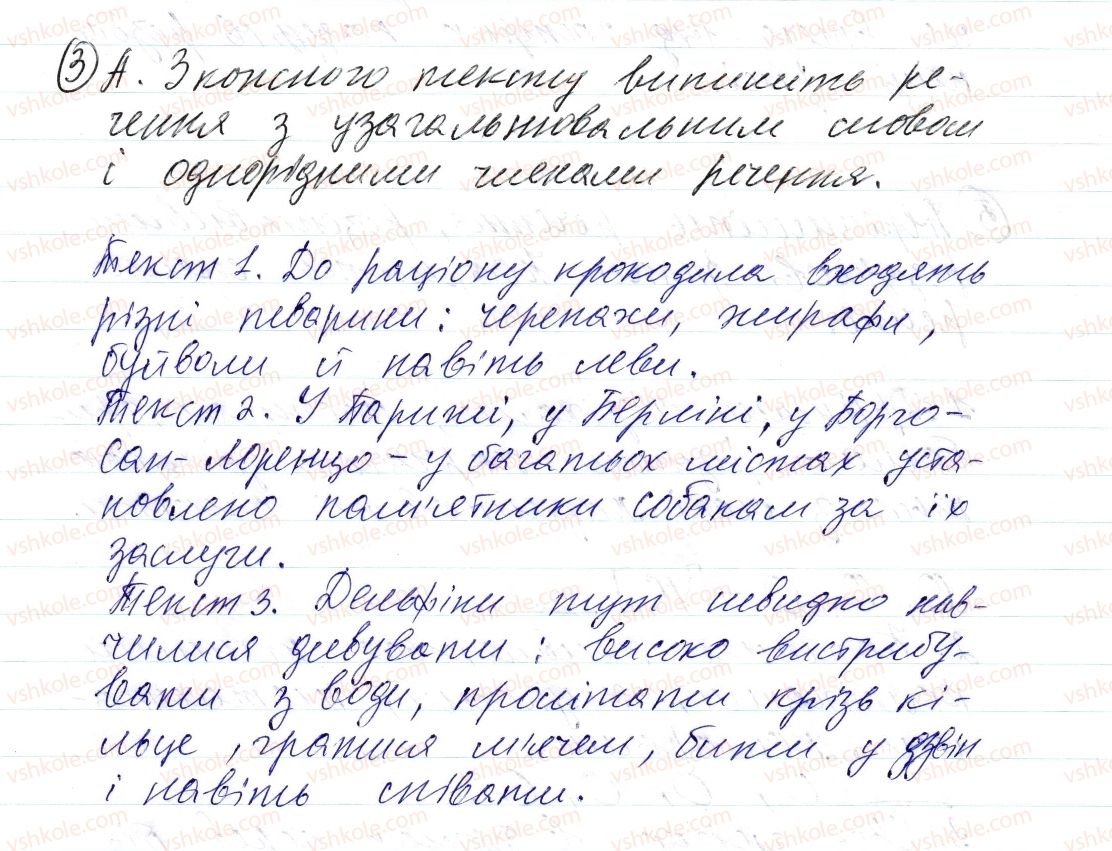 ③ А. З кожного тексту випишіть ре-
чення з узагальнювальним словом
і однорідними членами речення.
Текст 1. До раціону крокодила входять
різні тварини: черепахи, жирафи,
буйволи й навіть леви.
Текст 2. У Парижі, у Берліні, у Борго-
Сан-Лоренцо – у багатьох містах уста-
новлено пам'ятники собакам за їх
заслуги.
Текст 3. Дельфіни тут швидко нав-
чилися дивувати: високо вистрибу-
вати з води, пролітати крізь кі-
льце, гратися м'ячем, бити у дзвін
і навіть співати.